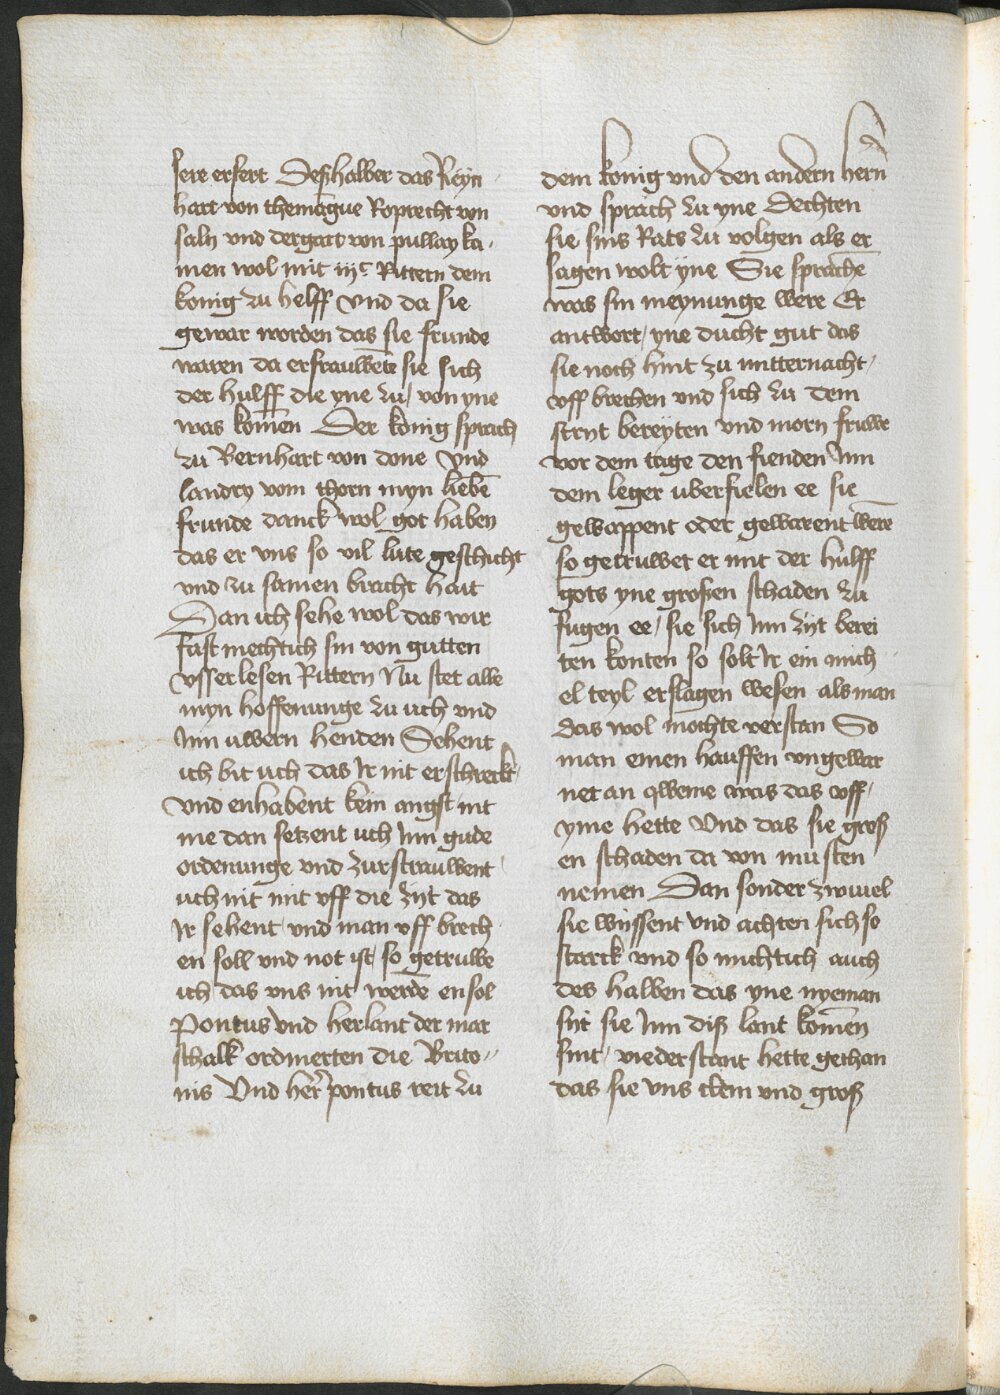 sere erfert Deßhalber das Reyn
hart von themague Roprecht von
saln und dergart von pullay ka-
men wol mit iijc Rittern dem
konig zu helff vnd da sie
gewar worden das sie frunde
waren da erfrauwete sie sich
der hulff die yne zu von yne
was komen Der konig sprach
zu Bernhart von done vnd
landry vom thorn myn liebe
frunde danck wol got haben
das er vns so vil lute geschicht
vnd zu samen bracht hait
Dan ich sehe wol das wir
fast mechtich sin von gutten
vsserlesen Rittern Nu stet alle
myn hoffenunge zu uch vnd
Inn uwern henden Sehent
ich bit uch das Ir nit erschreckt
vnd enhabent kein angst nit
me dan setzent uch Inn gude
ordenunge vnd zurstrauwent
uch nit mit vff die zijt das
Ir sehent vnd man vff brech
en soll vnd not ist so getruwe
ich das vns nit werde ensol
Pontus vnd herlant der mar
schalk ordinerten die Brito-
nis Vnd her pontus reit zu
dem konig vnd den andern hern
vnd sprach zu yne Dechten
sie sins Rats zu volgen als er
sagen wolt yne Sie sprache
was sin meynunge were Er
antwort yne ducht gut das
sie noch hint zu mitternacht
vff brechen vnd sich zu dem
strijt bereyten vnd morn fruwe
vor dem tage den fienden Inn
dem leger uberfielen ee sie
gewappent oder gewarent were
so getruwet er mit der hulff
gots yne großen schaden zu
fugen ee sie sich Inn zijt berei
ten konten so solt Ir ein mich
el teyl erslagen wesen als man
das wol mochte verstan So
man einen hauffen vngewar
net an qweme was das vff
yme hette Vnd das sie groß
en schaden da von musten
nemen Dan sonder zwiuel
sie wissent vnd achten sich so
starck vnd so michtich auch
des halben das yne nyeman
sijt sie Inn diß lant komen
sint wiederstant hette gethan
das sie vns clein vnd groß